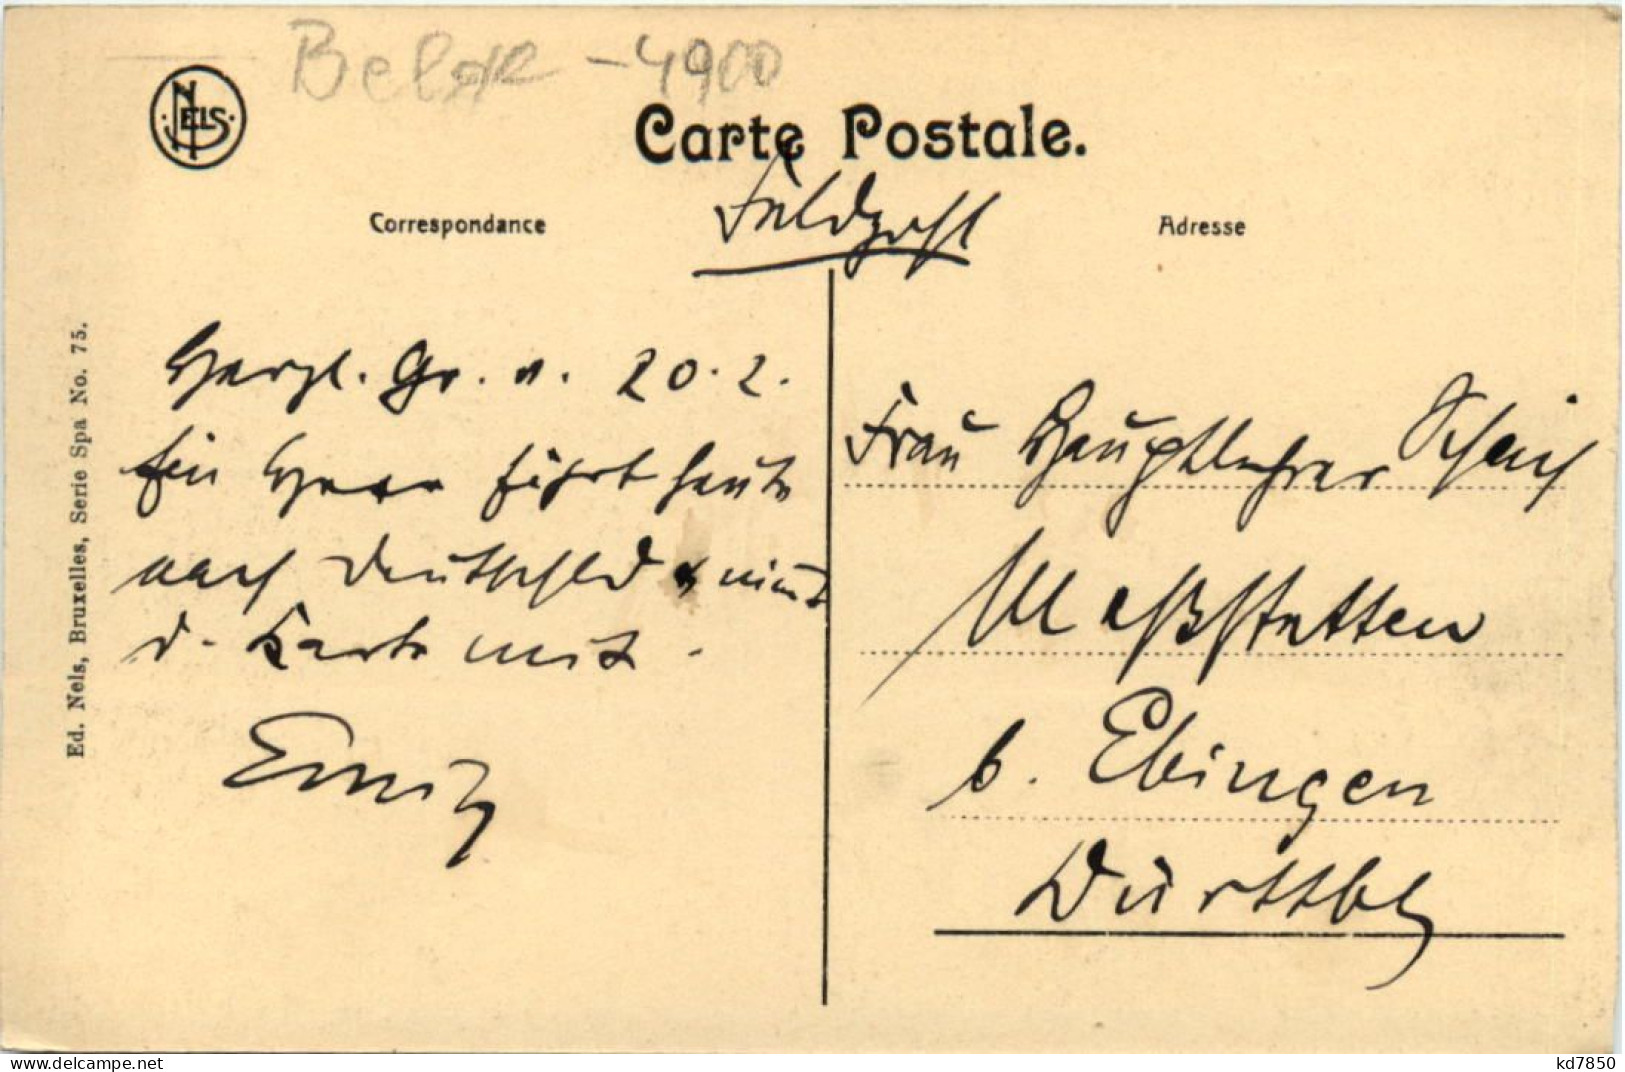 Belgie - 4900
NELS
Carte Postale.
Feldpost
Correspondance
Adresse
Herzl. Gr. v. 20. 2.
Ein Herr fährt heute
nach Deutschld & nimmt
d. Karte mit.
Emil
Frau Hauptlehrer
Meßstetten
b. Ebingen
Württbg
Ed. Nels, Bruxelles, Serie Spa No. 75.
www.delcampe.net
kd7850